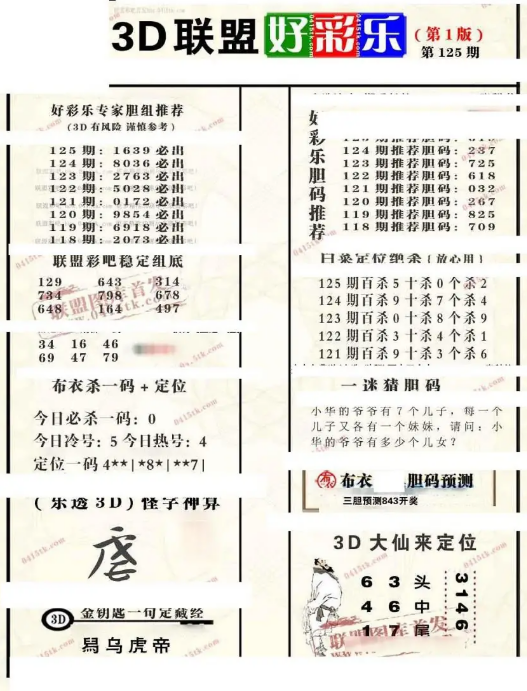 3D联盟
好彩乐
(第1版)
第125期
好彩乐专家胆组推荐
(3D有风险 谨慎参考)
125期: 1639必出
124期: 8036必出
123期: 2763必出
122期: 5028必出
121期: 0172必出
120期: 9854必出
119期: 6918必出
118期: 2073必出
联盟彩吧稳定组底
129 643 314
734 798 678
648 164 497
34 16 46
69 47 79
布衣杀一码+定位
今日必杀一码: 0
今日冷号: 5 今日热号: 4
定位一码4**|*8*|**7|
(乐透3D)怪字神算
金钥匙一句定藏经
3D
昺乌虎帝
好彩乐胆码推荐
124期推荐胆码: 237
123期推荐胆码: 725
122期推荐胆码: 618
121期推荐胆码: 032
120期推荐胆码: 267
119期推荐胆码: 825
118期推荐胆码: 709
日杀定位绝杀(放心用)
125期百杀5十杀0个杀2
124期百杀9十杀7个杀4
123期百杀0十杀8个杀9
122期百杀3十杀4个杀1
121期百杀9十杀3个杀6
一迷猜胆码
小华的爷爷有7个儿子,每一个
儿子又各有一个妹妹,请问:小
华的爷爷有多少个儿女?
布衣 胆码预测
三胆预测843开奖
3D大仙来定位
6 3 头
4 6 中
1 7 尾
3146
联盟图库首发
联盟图库首发
0415tk.com